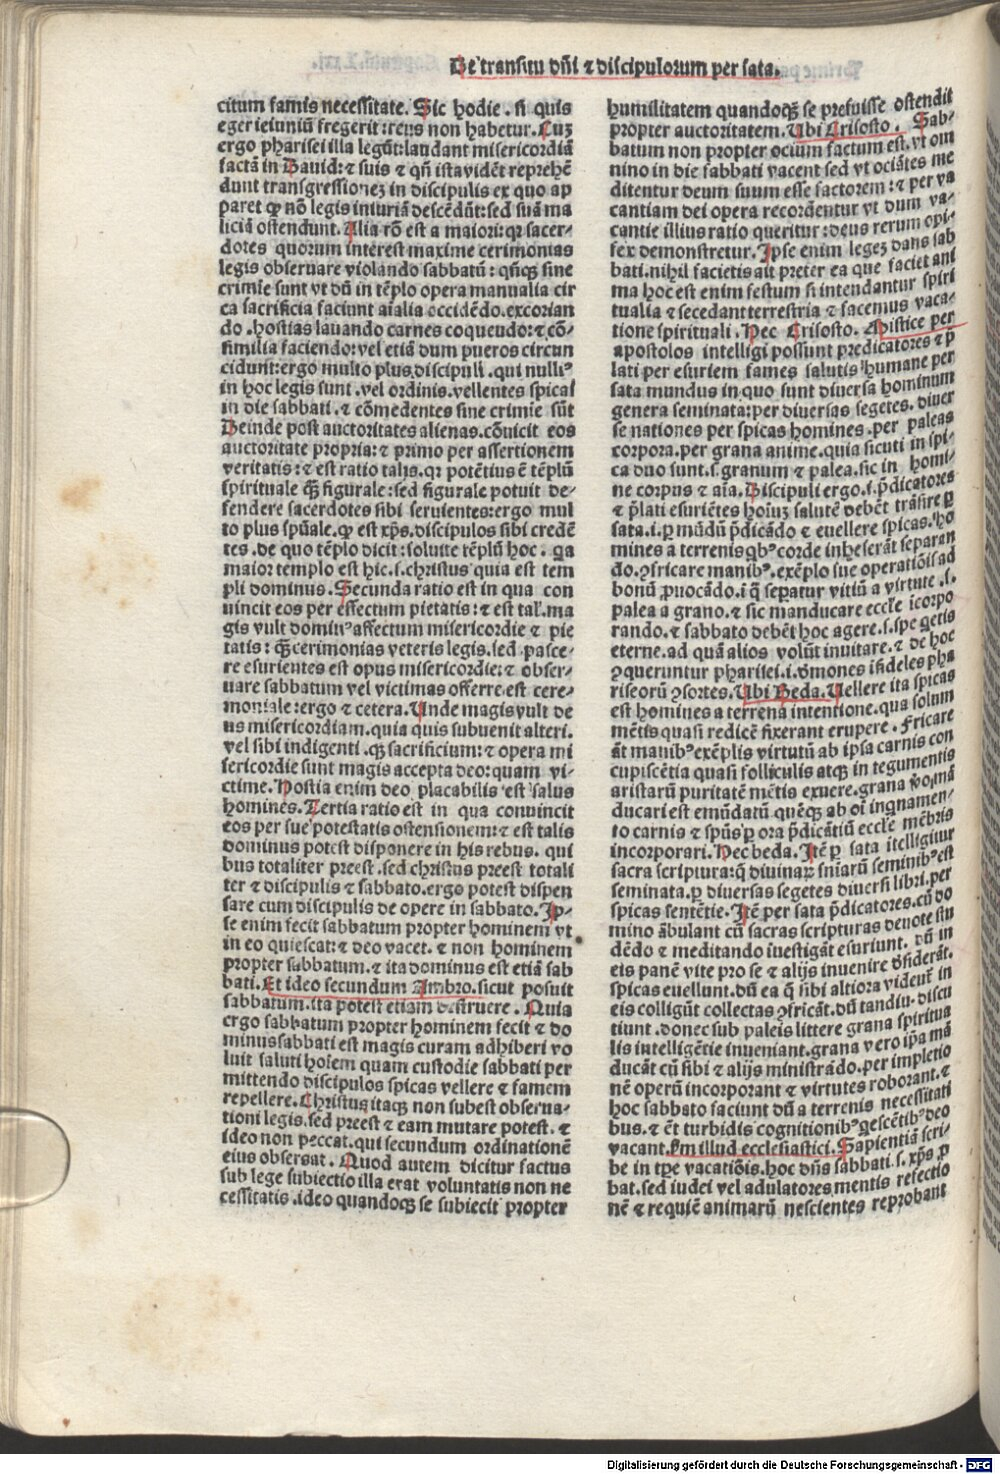 De transitu dñi ⁊ discipulorum per sata.
citum famis necessitate. Sic hodie. si quis
eger ieiuniũ fregerit: reus non habetur. Cuʒ
ergo pharisei illa legũt: laudant misericordiã
factã in Dauid: ⁊ suis ⁊ qñ ista vidẽt reprehẽ
dunt transgressioneʒ in discipulis ex quo ap
paret ꝙ nõ legis iniuriã descẽdũt: sed suã ma
liciã ostendunt. Alia rõ est a maiori: qꝛ sacer-
dotes quorum interest maxime cerimonias
legis obseruare violando sabbatũ: qñqꝫ sine
crimie sunt vt dũ in tẽplo opera manualia cir
ca sacrificia faciunt aĩalia occidẽdo. excorian
do. hostias lauando carnes coquendo: ⁊ cõ-
similia faciendo: vel etiã dum pueros circun
cidunt: ergo multo plus discipuli. qui nulliꝰ
in hoc legis sunt. vel ordinis. vellentes spicas
in die sabbati. ⁊ cõmedentes sine crimie sũt
Deinde post auctoritates alienas. cõuicit eos
auctoritate propria: ⁊ primo per assertionem
veritatis: ⁊ est ratio talis. qꝛ potẽtius ẽ tẽplũ
spirituale qꝫ figurale: sed figurale potuit de-
fendere sacerdotes sibi seruientes: ergo mul
to plus spũale. ꝙ est xp̃s. discipulos sibi credẽ
tes. de quo tẽplo dicit: soluite tẽplũ hoc. qa
maior templo est hic. s. christus quia est tem
pli dominus. Secunda ratio est in qua con
uincit eos per effectum pietatis: ⁊ est tał. ma
gis vult dominꝰ affectum misericordie ⁊ pie
tatis: qꝫ cerimonias veteris legis. sed pasce-
re esurientes est opus misericordie: ⁊ obser-
uare sabbatum vel victimas offerre est cere-
moniale: ergo ⁊ cetera. Unde magis vult de
us misericordiam. quia quis subuenit alteri.
vel sibi indigenti. qꝫ sacrificium: ⁊ opera mi
sericordie sunt magis accepta deo: quam vi-
ctime. Hostia enim deo placabilis est salus
homines. Tertia ratio est in qua conuincit
eos per sue potestatis ostensionem: ⁊ est talis
dominus potest disponere in his rebus. qui
bus totaliter preest. sed christus preest totali
ter ⁊ discipulis ⁊ sabbato. ergo potest dispen
sare cum discipulis de opere in sabbato. Ip-
se enim fecit sabbatum propter hominem vt
in eo quiescat: ⁊ deo vacet. ⁊ non hominem
propter sabbatum. ⁊ ita dominus est etiã sab
bati. Et ideo secundum Ambro. sicut posuit
sabbatum. ita potest etiam destruere. Quia
ergo sabbatum propter hominem fecit ⁊ do
minus sabbati est magis curam adhiberi vo
luit saluti hoĩem quam custodie sabbati per
mittendo discipulos spicas vellere ⁊ famem
repellere. Christus itaqꝫ non subest obserua-
tioni legis. sed preest ⁊ eam mutare potest. ⁊
ideo non peccat. qui secundum ordinationẽ
eius obseruat. Quod autem dicitur factus
sub lege subiectio illa erat voluntatis non ne
cessitatis. ideo quandoqꝫ se subiecit propter
humilitatem quandoqꝫ se prefuisse ostendit
propter auctoritatem. Ubi Crisosto. Sab-
batum non propter ocium factum est. vt om
nino in die sabbati vacent sed vt ociãtes me
ditentur deum suum esse factorem: ⁊ per va
cantiam dei opera recordentur vt dum va-
cantie illius ratio queritur: deus rerum opi-
fex demonstretur. Ipse enim legeʒ dans sab
bati. nihil facietis ait preter ea que faciet ani
ma hoc est enim festum si intendantur spiri
tualia ⁊ secedant terrestria ⁊ facemus vaca-
tione spirituali. Hec Crisosto. Mistice per
apostolos intelligi possunt predicatores ⁊ p̃
lati per esuriem fames salutis humane per
sata mundus in quo sunt diuersa hominum
genera seminata: per diuersas segetes. diuer
se nationes per spicas homines. per paleas
corpora. per grana anime. quia sicuti in spi-
ca duo sunt. s. granum ⁊ palea. sic in homi-
ne corpus ⁊ aĩa. Discipuli ergo. s. p̃dicatores
⁊ p̃lati esuriẽtes hoĩuʒ salutẽ debẽt trãsire ꝑ
sata. i. ꝑ mũdũ p̃dicãdo ⁊ euellere spicas. ho
mines a terrenis qbꝰ corde inheserãt separan
do. ꝯfricare manibꝰ. exẽplo sue operatiõis ad
bonũ ꝓuocãdo. i q̃ separatur vitiũ a virtute. s.
palea a grano. ⁊ sic manducare eccĺe icorpo
rando. ⁊ sabbato debẽt hoc agere. s. spe getis
eterne. ad quã alios volũt inuitare. ⁊ de hoc
ꝯqueruntur pharisei. i. ẜmones ifideles pha
riseorũ ꝯsortes. Ubi Beda. Vellere ita spicas
est homines a terrena intentione. qua solum
mẽtis quasi radicẽ fixerant erupere. Fricare
ãt manibꝰ exẽplis virtutũ ab ipsa carnis con
cupiscẽtia quasi folliculis atqꝫ in tegumentis
aristarũ puritatẽ mẽtis exuere. grana vo mã
ducari est emũdatũ quẽqꝫ ab oĩ inqnamen-
to carnis ⁊ spũs ꝑ ora p̃dicãtiũ eccĺe mẽbris
incorporari. Hec beda. Itẽ ꝑ sata itelligitur
sacra scriptura: q̃ diuinaꝝ sniarũ seminibꝰ est
seminata. ꝑ diuersas segetes diuersi libri. per
spicas sentẽtie. Itẽ per sata p̃dicatores. cũ do
mino ãbulant cũ sacras scripturas deuote stu
dẽdo ⁊ meditando iuestigãt esuriunt. dũ in
eis panẽ vite pro se ⁊ alijs inuenire ꝺsiderãt.
spicas euellunt. dũ ea q̃ sibi altiora vident̃ in
eis colligũt collectas ꝯfricãt. dũ tandiu discu
tiunt. donec sub paleis littere grana spiritua
lis intelligẽtie inueniant. grana vero ip̃a mã
ducãt cũ sibi ⁊ alijs ministrãdo. per impletio
nẽ operũ incorporant ⁊ virtutes roborant. ⁊
hoc sabbato faciunt dũ a terrenis necessitati
bus. ⁊ ẽt turbidis cognitionibꝰ qescẽtibꝰ deo
vacant. Fm illud ecclesiastici. Sapientiã scri-
be in tp̃e vacatiõis. hoc dñs sabbati. s. xp̃s ꝓ
bat. sed iudei vel adulatores mentis refectio
nẽ ⁊ requiẽ animarũ nescientes reprobant
Digitalisierung gefördert durch die Deutsche Forschungsgemeinschaft - DFG